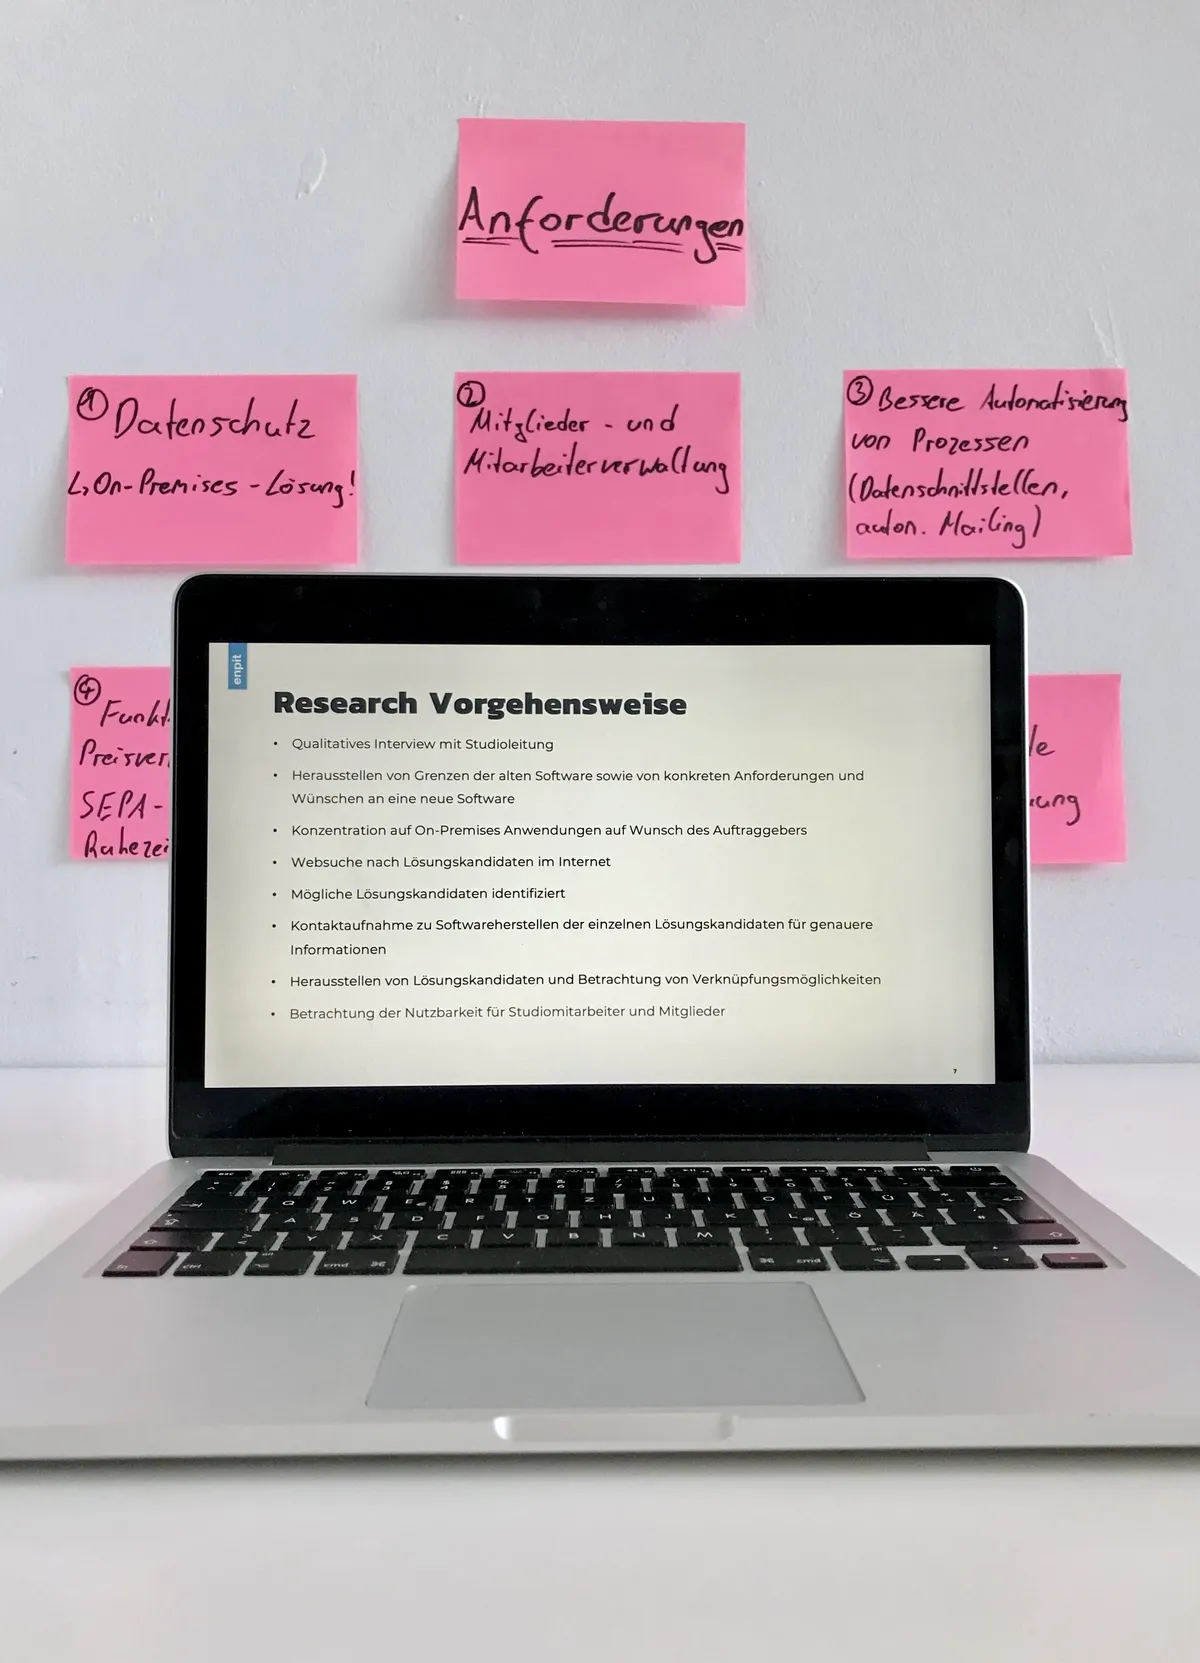 Anforderungen
① Datenschutz
↳ On-Premises-Lösung!
②
Mitglieder- und
Mitarbeiterverwaltung
③ Bessere Automatisierung
von Prozessen
(Datenschnittstellen,
autom. Mailing)
④
Funkt
Preisver
SEPA-
Ruhezei
le
rung
enpit
Research Vorgehensweise
• Qualitatives Interview mit Studioleitung
• Herausstellen von Grenzen der alten Software sowie von konkreten Anforderungen und
Wünschen an eine neue Software
• Konzentration auf On-Premises Anwendungen auf Wunsch des Auftraggebers
• Websuche nach Lösungskandidaten im Internet
• Mögliche Lösungskandidaten identifiziert
• Kontaktaufnahme zu Softwareherstellen der einzelnen Lösungskandidaten für genauere
Informationen
• Herausstellen von Lösungskandidaten und Betrachtung von Verknüpfungsmöglichkeiten
• Betrachtung der Nutzbarkeit für Studiomitarbeiter und Mitglieder
7
Q W E R T Z U I O P Ü
A S D F G H J K L Ö Ä
Y X C V B N M
fn ctrl cmd cmd